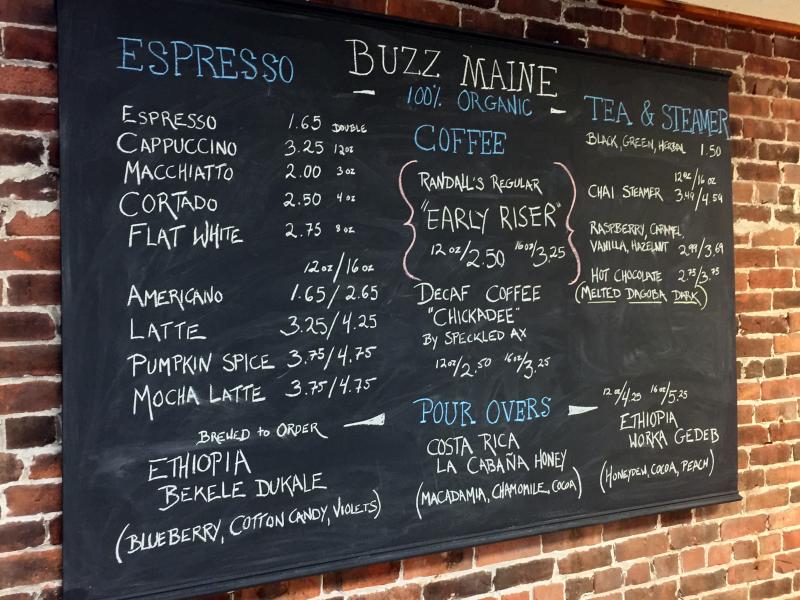 BUZZ MAINE
100% ORGANIC
ESPRESSO
ESPRESSO 1.65 DOUBLE
CAPPUCCINO 3.25 12oz
MACCHIATTO 2.00 3oz
CORTADO 2.50 4oz
FLAT WHITE 2.75 8oz
12oz/16oz
AMERICANO 1.65/2.65
LATTE 3.25/4.25
PUMPKIN SPICE 3.75/4.75
MOCHA LATTE 3.75/4.75
COFFEE
RANDALL'S REGULAR
"EARLY RISER"
12oz/2.50 16oz/3.25
DECAF COFFEE
"CHICKADEE"
BY SPECKLED AX
12oz/2.50 16oz/3.25
TEA & STEAMER
BLACK, GREEN, HERBAL 1.50
12oz/16oz
CHAI STEAMER 3.49/4.59
RASPBERRY, CARAMEL,
VANILLA, HAZELNUT 2.99/3.69
HOT CHOCOLATE 2.75/3.75
(MELTED DAGOBA DARK)
POUR OVERS
BREWED TO ORDER
12oz/4.25 16oz/5.25
ETHIOPIA
BEKELE DUKALE
(BLUEBERRY, COTTON CANDY, VIOLETS)
COSTA RICA
LA CABAÑA HONEY
(MACADAMIA, CHAMOMILE, COCOA)
ETHIOPIA
WORKA GEDEB
(HONEYDEW, COCOA, PEACH)